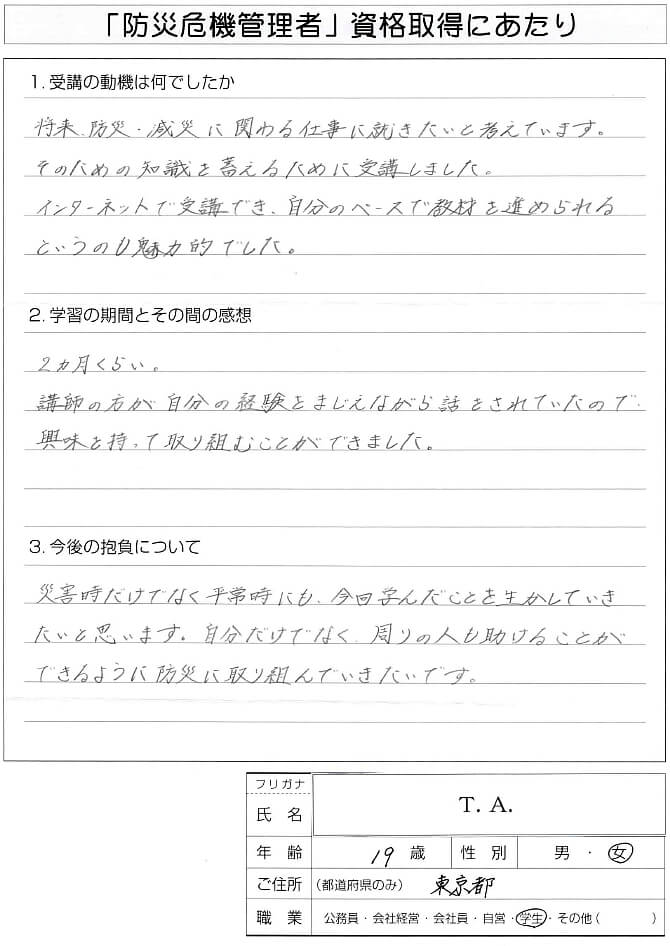 「防災危機管理者」資格取得にあたり
1. 受講の動機は何でしたか
将来、防災・減災に関わる仕事に就きたいと考えています。
そのための知識を蓄えるために受講しました。
インターネットで受講でき、自分のペースで教材を進められる
というのも魅力的でした。
2. 学習の期間とその間の感想
2ヵ月くらい。
講師の方が自分の経験をまじえながら話をされていたので、
興味を持って取り組むことができました。
3. 今後の抱負について
災害時だけでなく平常時にも、今回学んだことを生かしていき
たいと思います。自分だけでなく、周りの人も助けることが
できるように防災に取り組んでいきたいです。
フリガナ
氏 名 T. A.
年 齢 19 歳 性 別 男 ・ 女
ご住所 (都道府県のみ) 東京都
職 業 公務員・会社経営・会社員・自営・学生・その他( )